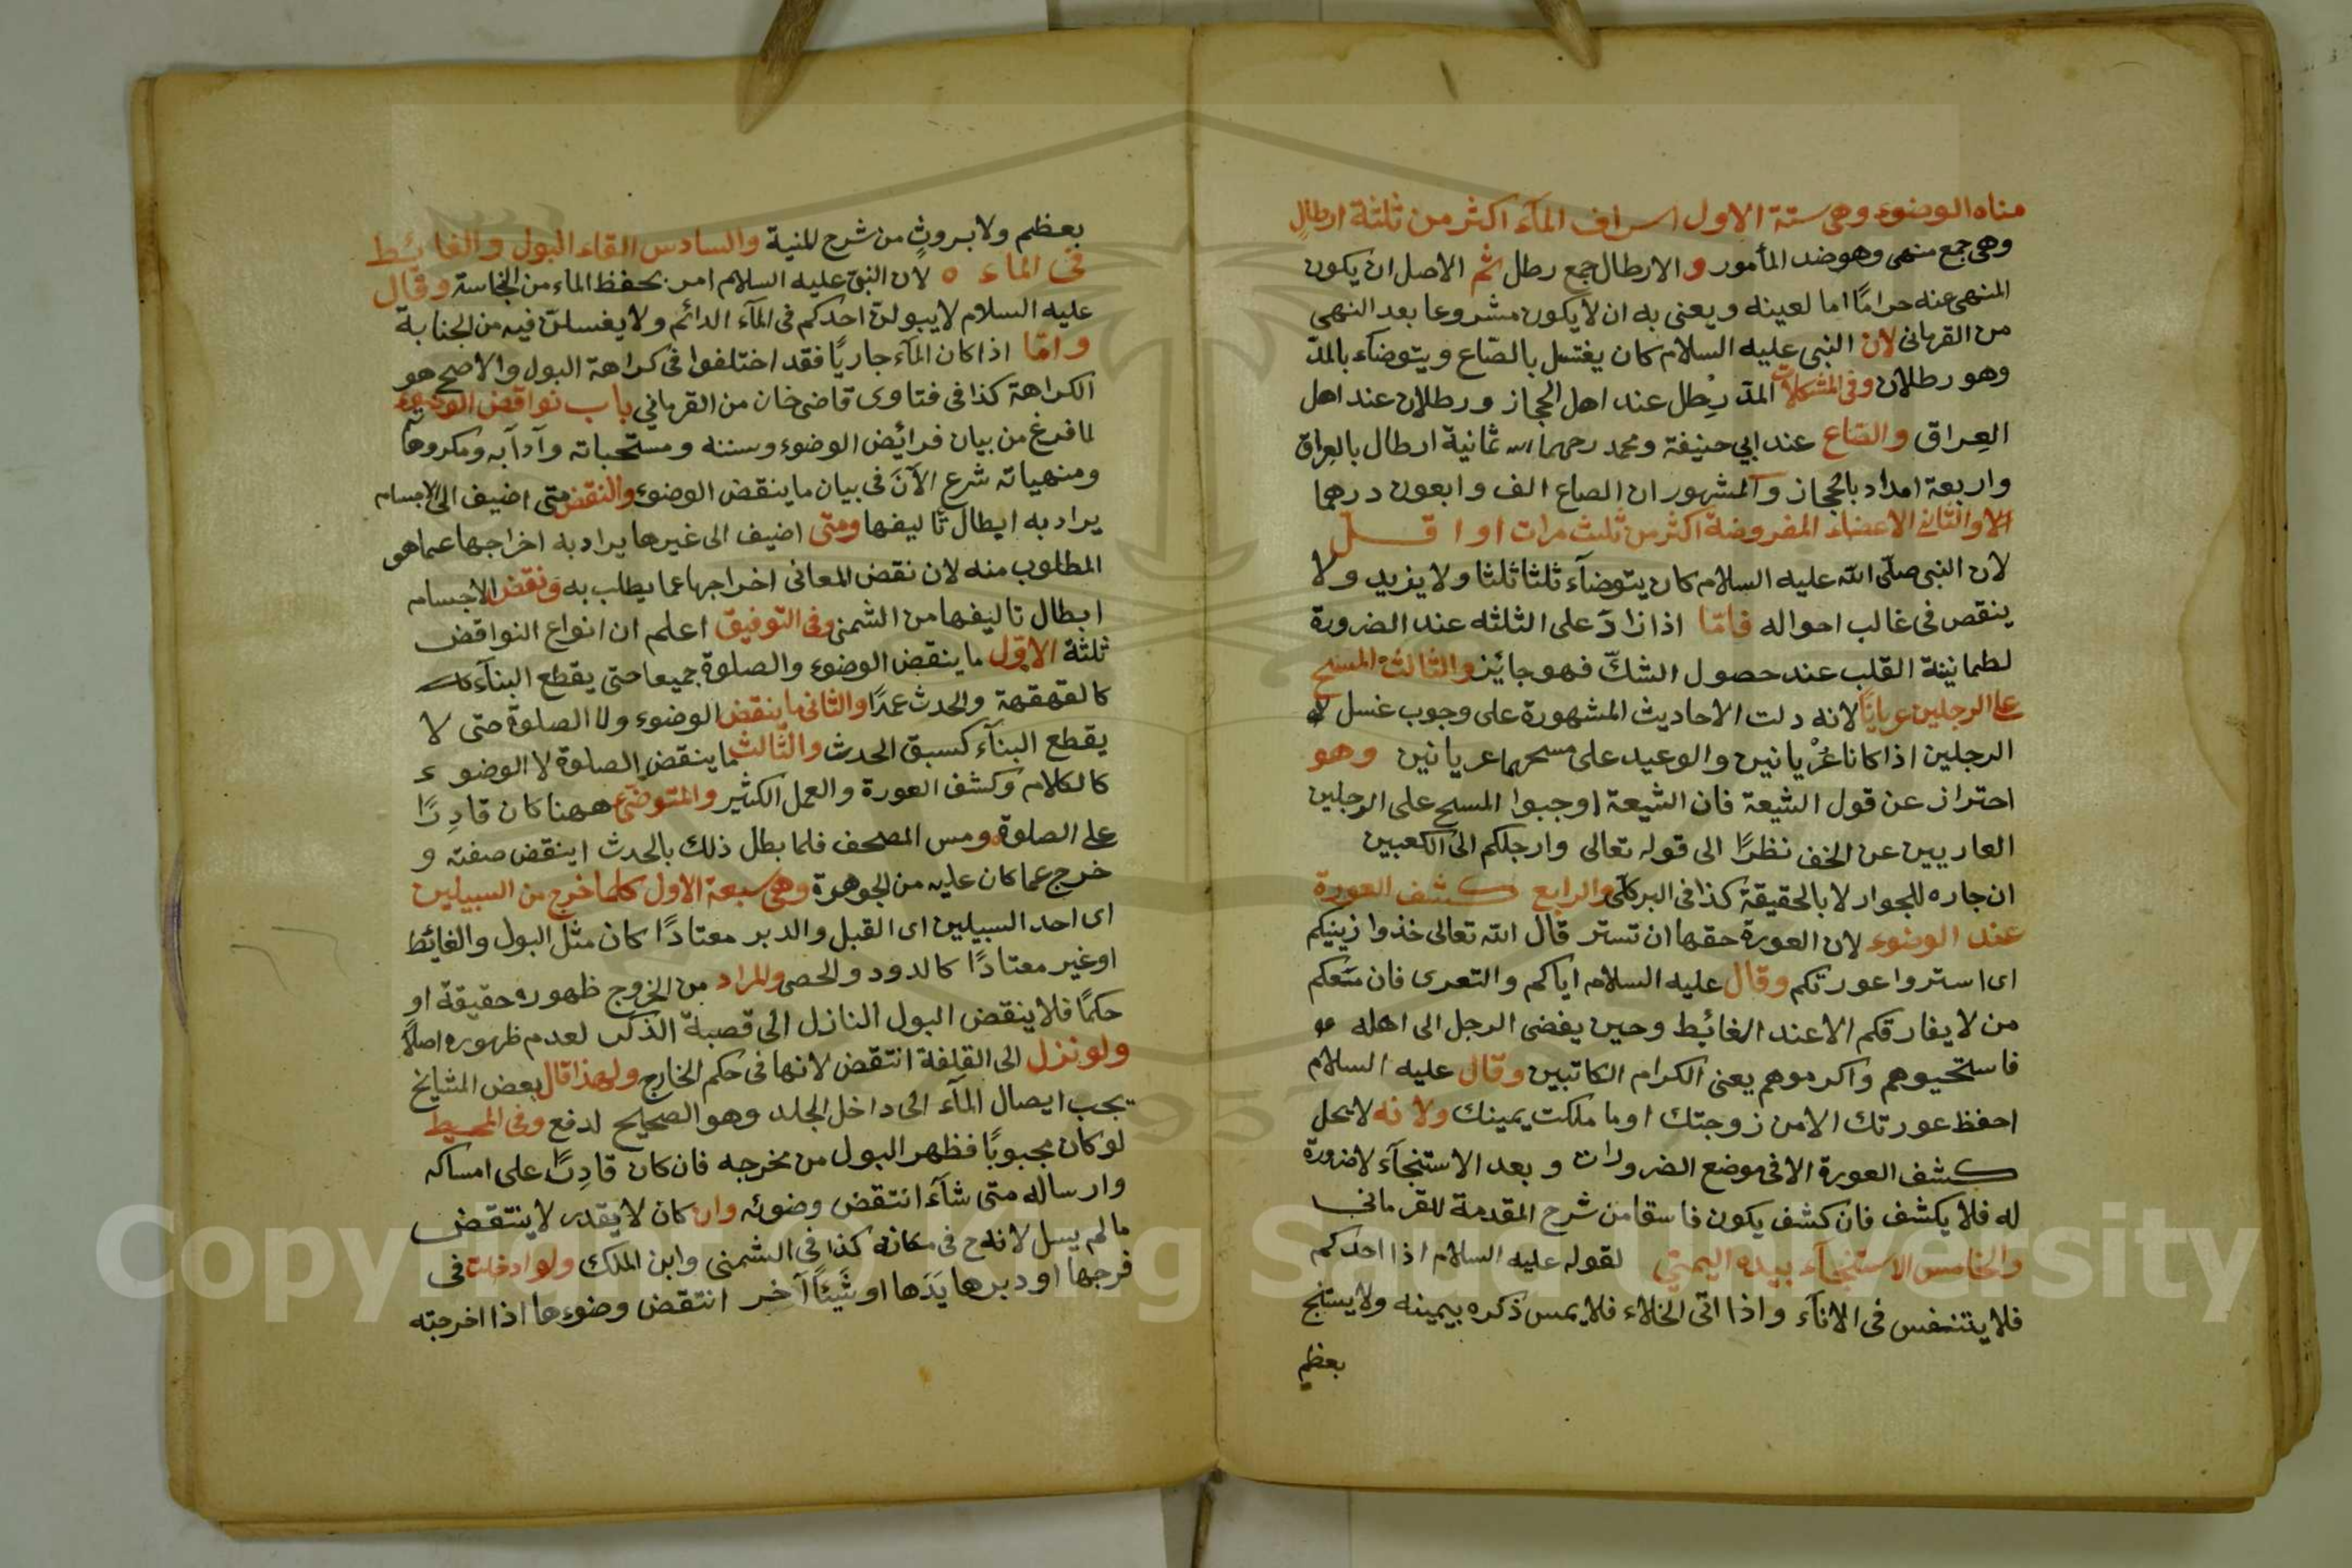 مناه الوضوء وهى ستة الاول اسراف المآء اكثر من ثلثة ارطال
وهى جمع منهى وهو ضد المأمور و الارطال جمع رطل ثم الاصل ان يكون
المنهى عنه حرامًا اما لعينه ويعنى به ان لا يكون مشروعا بعد النهى
من القرمانى لان النبى عليه السلام كان يغتسل بالصّاع ويتوضآء بالمدّ
وهو رطلان وفى المشكلات المدّ رِطل عند اهل الحجاز ورطلان عند اهل
العِراق والصّاع عند ابي حنيفة ومحمد رحمهما الله ثمانية ارطال بالعِراق
واربعة امداد بالحجاز والمشهور ان الصاع الف واربعون درهما
والثانى الاعضاء المفروضة اكثر من ثلث مرات او اقل
لان النبى صلّى الله عليه السلام كان يتوضآء ثلثا ثلثا ولا يزيد ولا
ينقص فى غالب احواله فامّا اذا زادَ على الثلثه عند الضرورة
لطمانينة القلب عند حصول الشكّ فهو جائيز والثالث المسح
على الرجلين عريانًا لانه دلت الاحاديث المشهورة على وجوب غسل
الرجلين اذا كانا عُرْيانين والوعيد على مسحهما عريانين وهو
احتراز عن قول الشيعة فان الشيعة اوجبوا المسح على الرجلين
العاريين عن الخف نظرًا الى قوله تعالى وارجلكم الى الكعبين
ان جاره للجوار لا بالحقيقة كذا فى البركلى والرابع كشف العورة
عند الوضوء لان العورة حقها ان تستر قال الله تعالى خذوا زينيكم
اى استروا عورتكم وقال عليه السلام اياكم والتعرى فان معكم
من لا يفارقكم الا عند الغائيط وحين يفضى الرجل الى اهله
فاستحيوهم واكرموهم يعنى الكرام الكاتبين وقال عليه السلام
احفظ عورتك الا من زوجتك او ما ملكت يمينك ولانه لا يحل
كشف العورة الا فى موضع الضرورات وبعد الاستنجآء لا ضرورة
له فلا يكشف فان كشف يكون فاسقا من شرح المقدمة للقرمانى
والخامس الاستنجآء بيده اليمنى لقوله عليه السلام اذا احدكم
فلا يتنفس فى الانآء واذا اتى الخلاء فلا يمس ذكره بيمينه ولا يستنج
بعظم
بعظم ولا بروثٍ من شرح المنية والسادس القاء البول والغائيط
فى الماء ه لان النبى عليه السلام امر بحفظ الماء من النجاسة وقال
عليه السلام لا يبولنّ احدكم فى المآء الدائم ولا يغسلنّ فيه من الجنابة
وامّا اذا كان المآء جاريًا فقد اختلفوا فى كراهة البول والاصح هو
الكراهة كذا فى فتاوى قاضى خان من القرمانى باب نواقض الوضوء
لما فرغ من بيان فرائيض الوضوء وسننه ومستحباته وآدآبه ومكروهاته
ومنهياته شرع الآنَ فى بيان ما ينقض الوضوء والنقض متى اضيف الى الاجسام
يراد به ابطال تاليفها ومتى اضيف الى غيرها يراد به اخراجها عما هو
المطلوب منه لان نقض المعانى اخراجها عما يطلب به ونقض الاجسام
ابطال تاليفها من الشمنى وفى التوفيق اعلم ان انواع النواقض
ثلثة الاوّل ما ينقض الوضوء والصلوة جميعا حتى يقطع البنآء
كالقهقهة والحدث عمدًا والثانى ما ينقض الوضوء ولا الصلوة حتى لا
يقطع البنآء كسبق الحدث والثالث ما ينقض الصلوة لا الوضوء
كالكلام وكشف العورة والعمل الكثير والمتوضئ ههنا كان قادِرًا
على الصلوة ومس المصحف فلما بطل ذلك بالحدث اينقض صفته و
خرج عما كان عليه من الجوهرة وهى سبعة الاول كلما خرج من السبيلين
اى احد السبيلين اى القبل والدبر معتادًا كان مثل البول والغائيط
او غير معتادًا كالدود والحصى والمراد من الخروج ظهوره حقيقة او
حكمًا فلا ينقض البول النازل الى قصبة الذكر لعدم ظهوره اصلًا
ولو نزل الى القلفة انتقض لانها فى حكم الخارج ولهذا قال بعض المشايخ
يجب ايصال المآء الى داخل الجلد وهو الصحيح لدفع وفى المحيط
لو كان مجبوبًا فظهر البول من مخرجه فان كان قادِرًا على امساكه
وارساله متى شآء انتقض وضوئه وان كان لا يقدر لا ينتقض
ما لم يسل لانه ح فى مكانه كذا فى الشمنى وابن الملك ولو ادخلت فى
فرجها او دبرها يَدَها او شَيئًا آخر انتقض وضوءها اذا اخرجته
Copyright © King Saud University